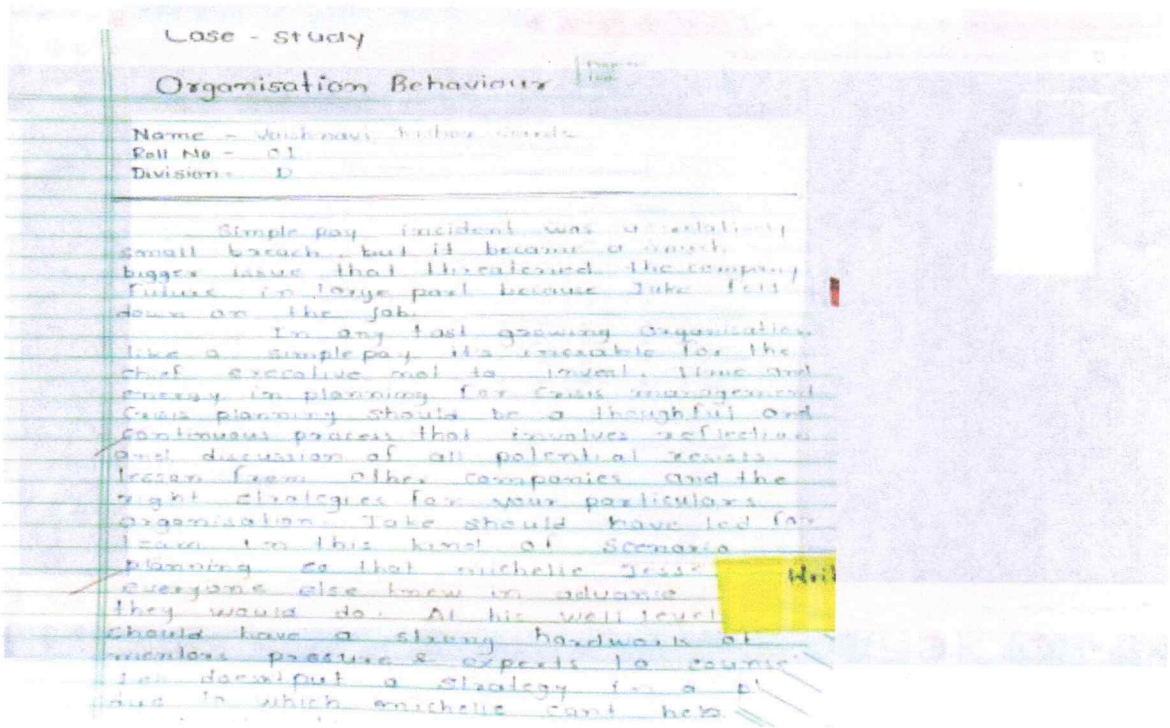 Case - study
Organisation Behaviour
Name - Vaishnavi
Roll No - 01
Division - D
Simple pay incident was a relatively
small breach but it became a much
bigger issue that threatened the company
future in large part because Jake fell
down on the job.
In any fast growing Organisation
like a simplepay it's for the
chief executive not to invest time and
energy in planning for crisis management
Crisis planning should be a thoughful and
continuous process that involves reflection
and discussion of all potential
lesson from other companies and the
right strategies for your particulars
organisation. Jake should have led
team in this kind of scenario
planning so that michelle Jesse
everyone else knew in advance
they would do. At his well level
should have a strong of
mentors experts to
put a strategy in a
in which michelle cant help
Writ